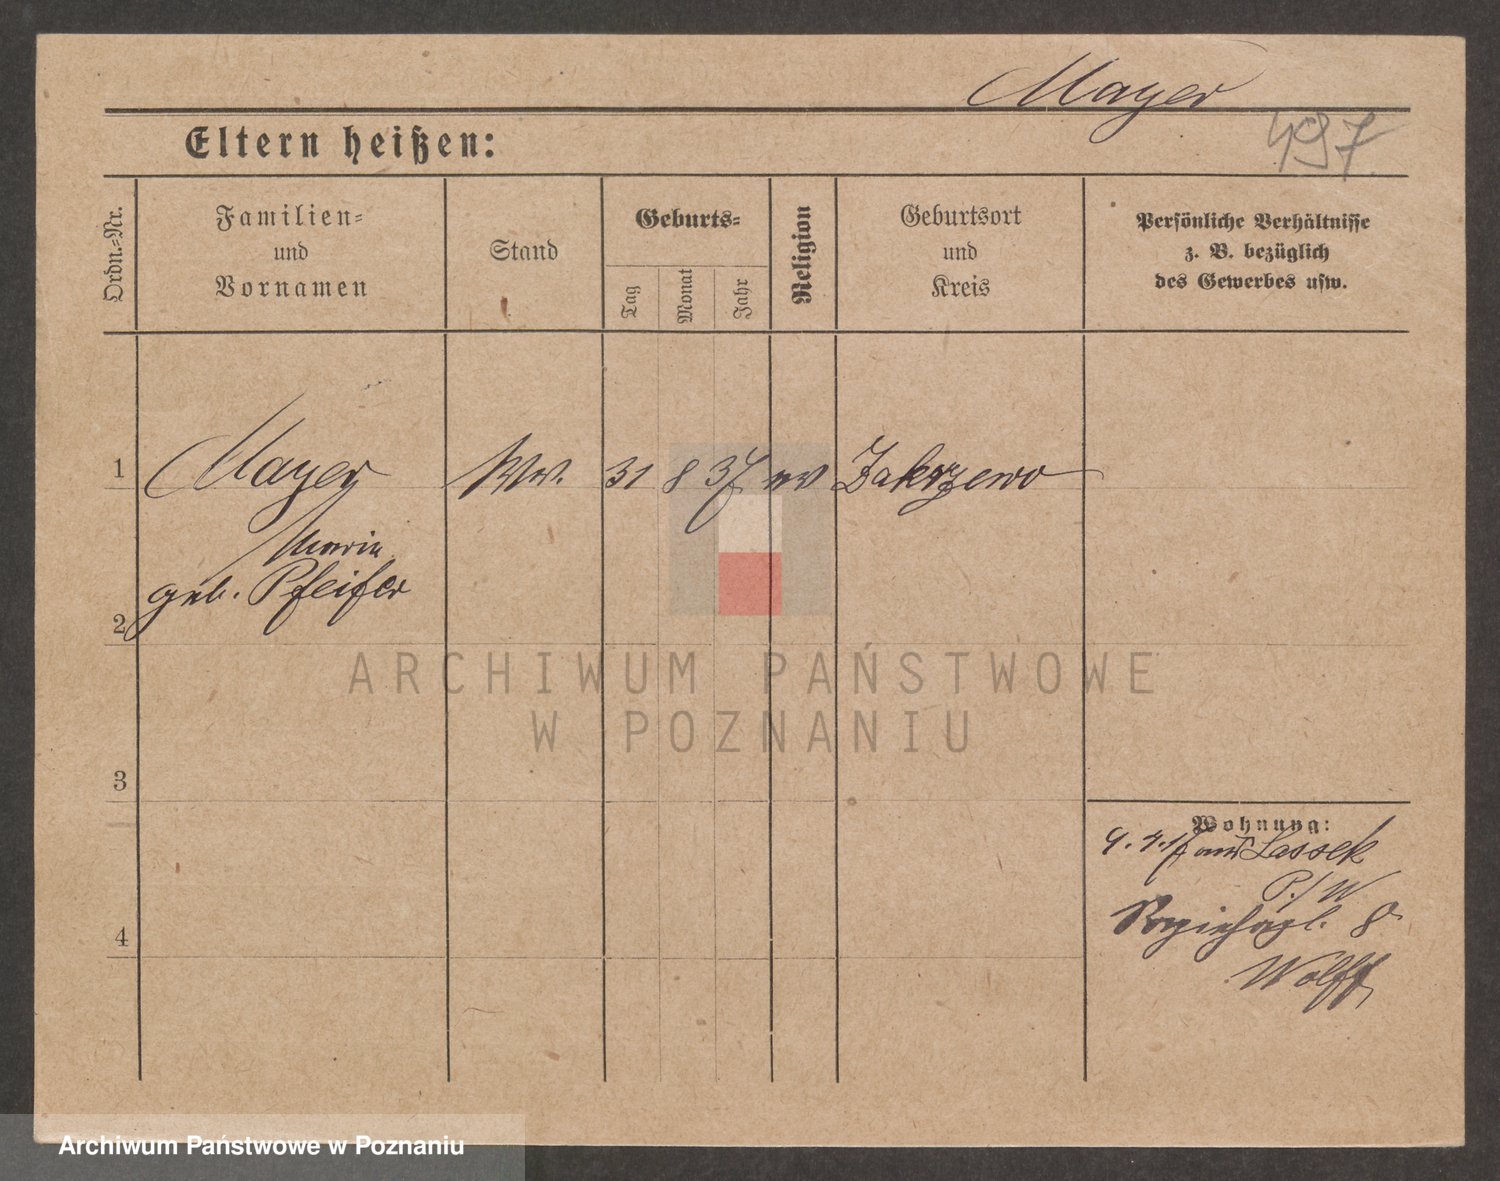 Mayer
497
Eltern heißen:
Ordn.-Nr.
Familien-
und
Vornamen
Stand
Geburts-
Tag
Monat
Jahr
Religion
Geburtsort
und
Kreis
Persönliche Verhältnisse
z. B. bezüglich
des Gewerbes usw.
1 Mayer Ww. 31 8 37 ev Zakrzewo
Maria
geb. Pfeifer
2
ARCHIWUM PAŃSTWOWE
W POZNANIU
3
Wohnung:
9.4.17 aus Lassek
P./W
8
4
Wolff
Archiwum Państwowe w Poznaniu